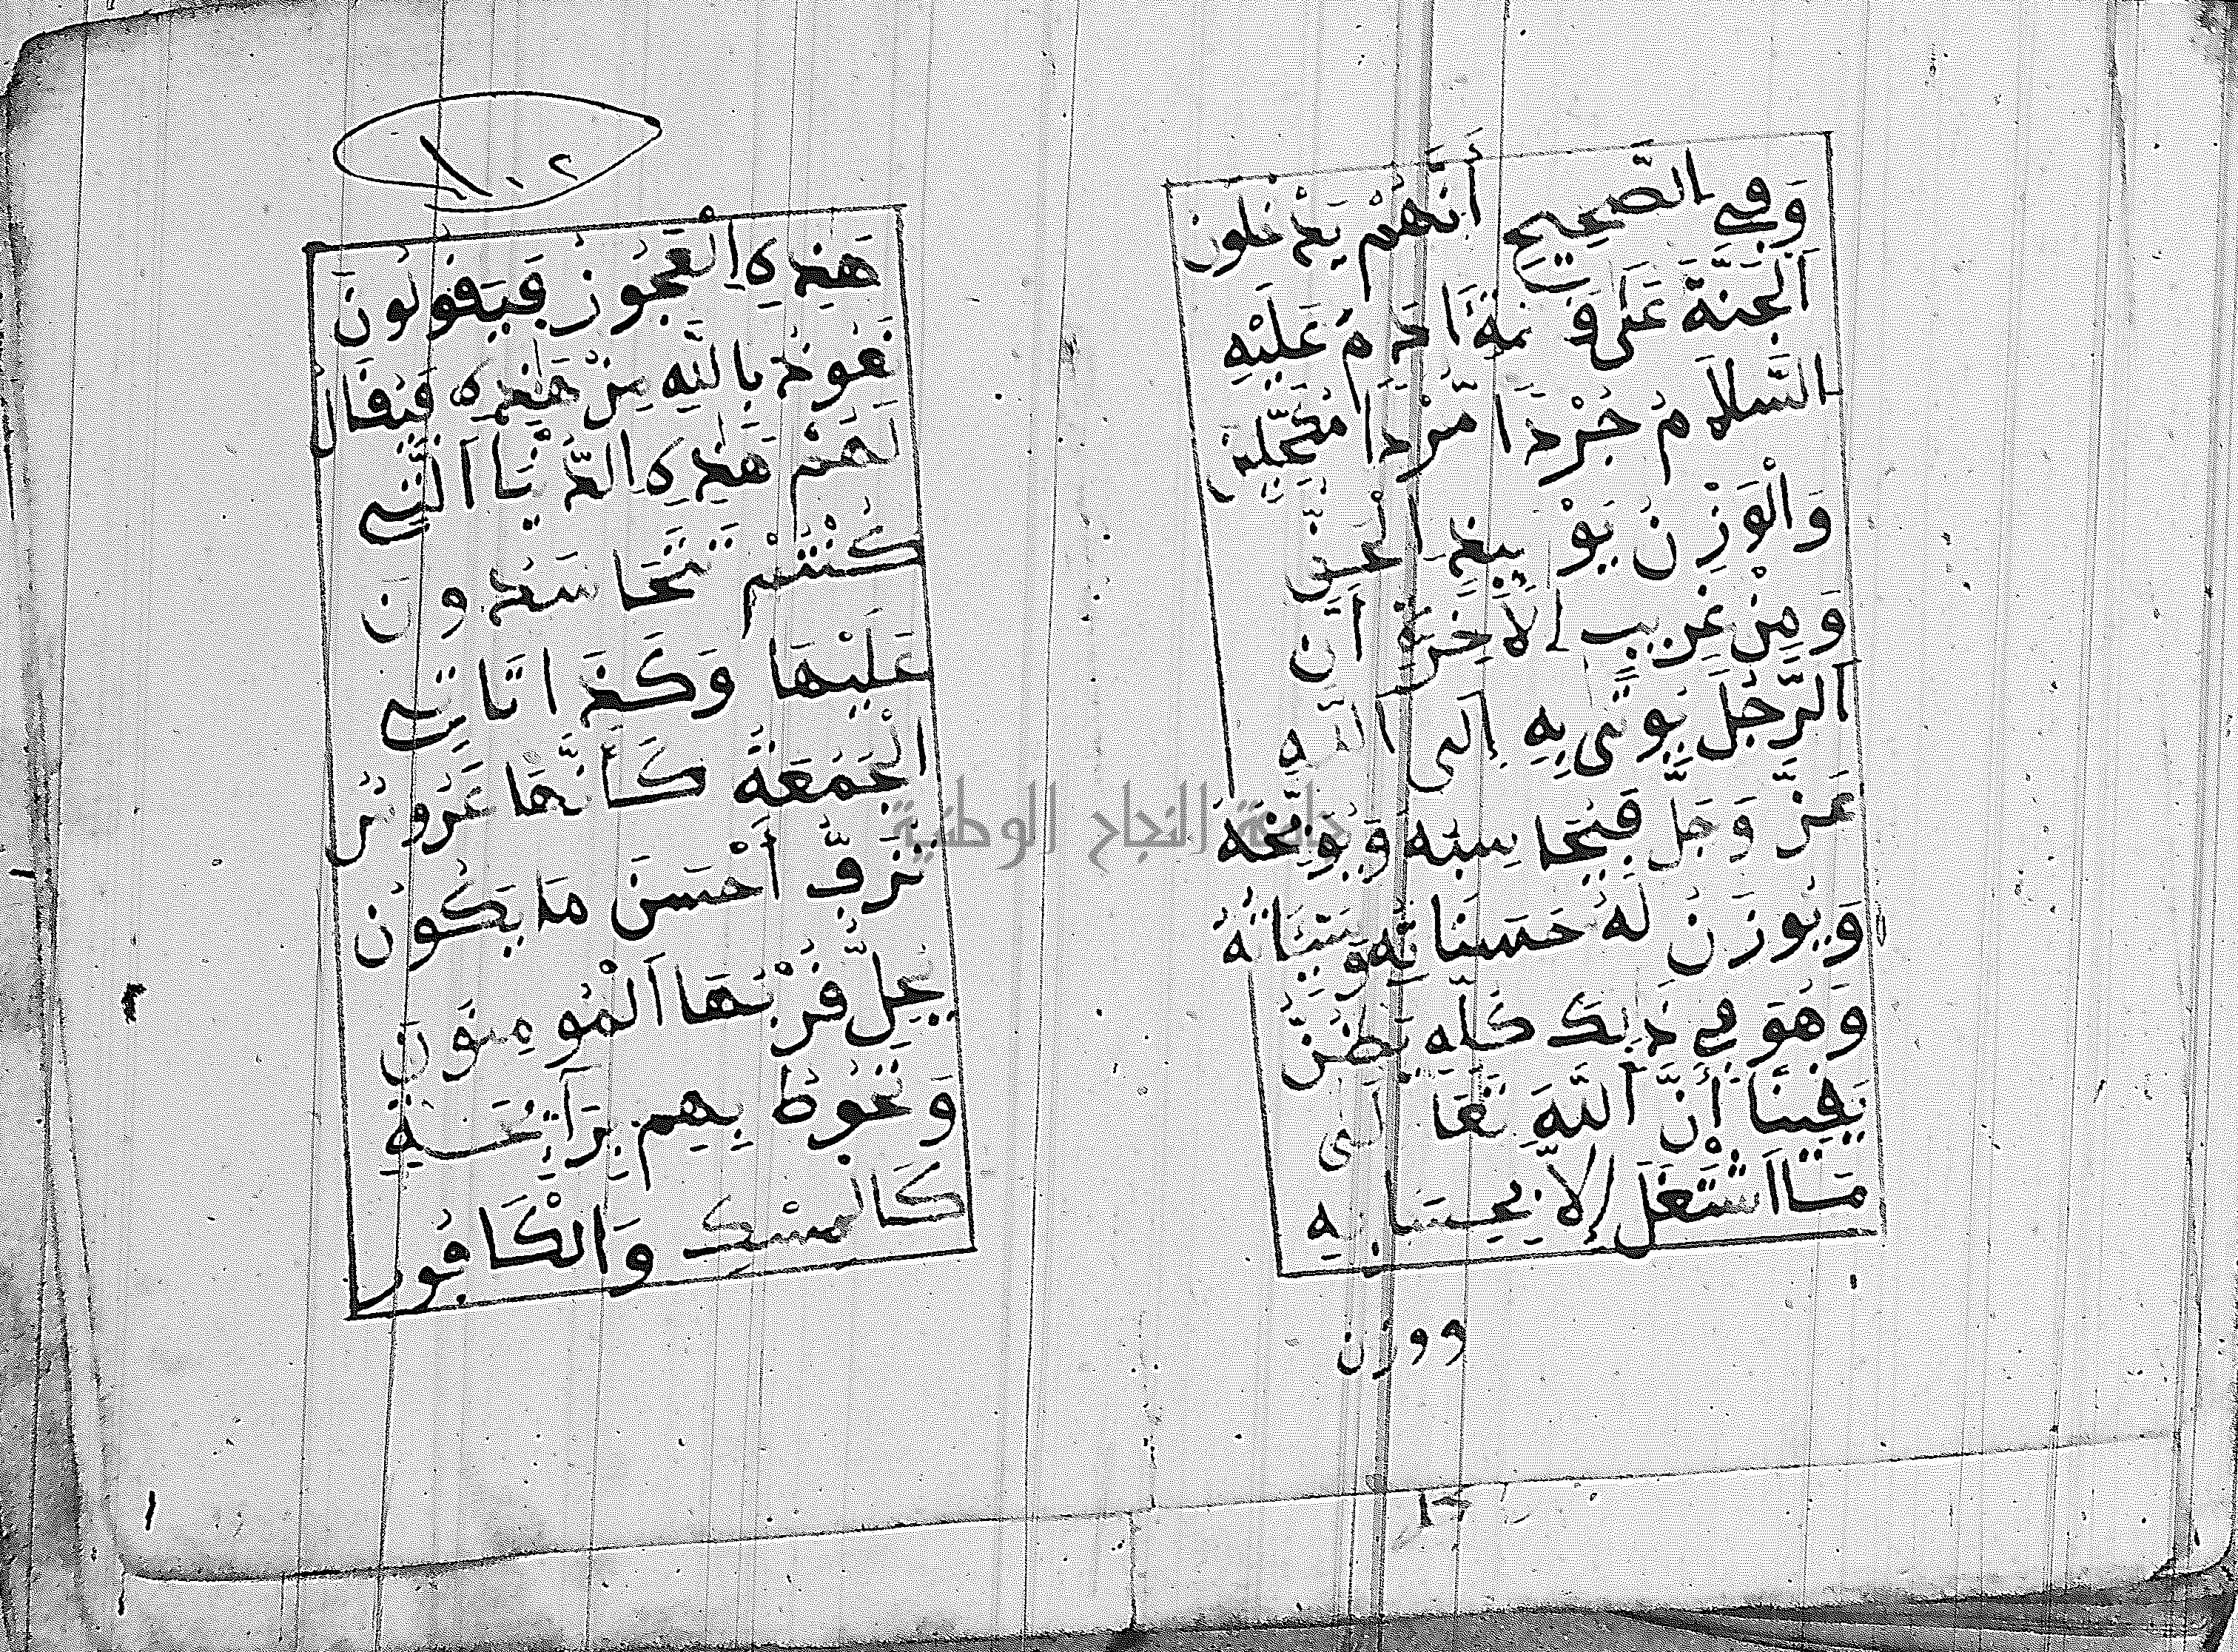 وَفِي الصَّحِيحِ أَنَّهُمْ يَدْخُلُون
اَلْجَنَّةَ عَلَى قَمَةِ اَدَمَ عَلَيْهِ
السَّلاَمُ جُرْدًا مُّرْدًا مُكَحَّلِينَ
وَالْوَزْنُ يَوْمَيِذٍ الْحَقُّ
وَمِنْ غَرِيبِ الأَخِرَةِ أَن
الرَّجُلَ يُوتَى بِهِ إِلَى اللَّهِ
عَزَّ وَجَلَّ فَيُحَاسِبُهُ وَيُوَبِّخُهُ
وَيُوزَنُ لَهُ حَسَنَاتُهُ وَسَيِّئَاتُهُ
وَهُوَ فِي ذَلِكَ كُلِّهِ يَظُنُّ
يَقِينًا أَنَّ اَللَّهَ تَعَالَى
مَا اَشْتَغَلَ إِلاَّ بِحِسَابِهِ
ووزن
١٠٢
هَذِهِ اِلْعَجُوزُ فَيَقُولُونَ
نَعُوذُ بِاللَّهِ مِنْ هَذِهِ فَيُقَالُ
لَهُمْ هَذِهِ اِلدُّنْيَا اَلَّتِي
كُنْتُمْ تَتَحَاسَدُونَ
عَلَيْهَا وَكَذَا تَاتِي
الْجُمُعَةُ كَأَنَّهَا عَرُوسٌ
تُزَفُّ أَحْسَنَ مَا يَكُونُ
يُجِلُّ قُرْبَهَا اَلْمُومِنُونَ
وَتَحُوطُ بِهِم بِرَآئِحَةٍ
كَالْمِسْكِ وَالْكَافُور
جامعة النجاح الوطنية